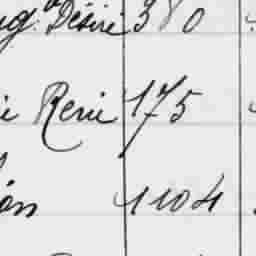 ug. Désiré 380
ie René 175
on 1104